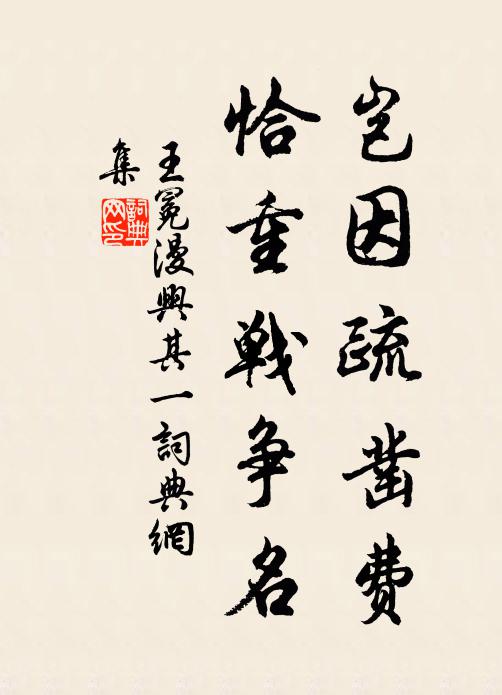 岂因疏凿费
恰重戰争名
王冕漫興其一詞典網
集
詞典
网印